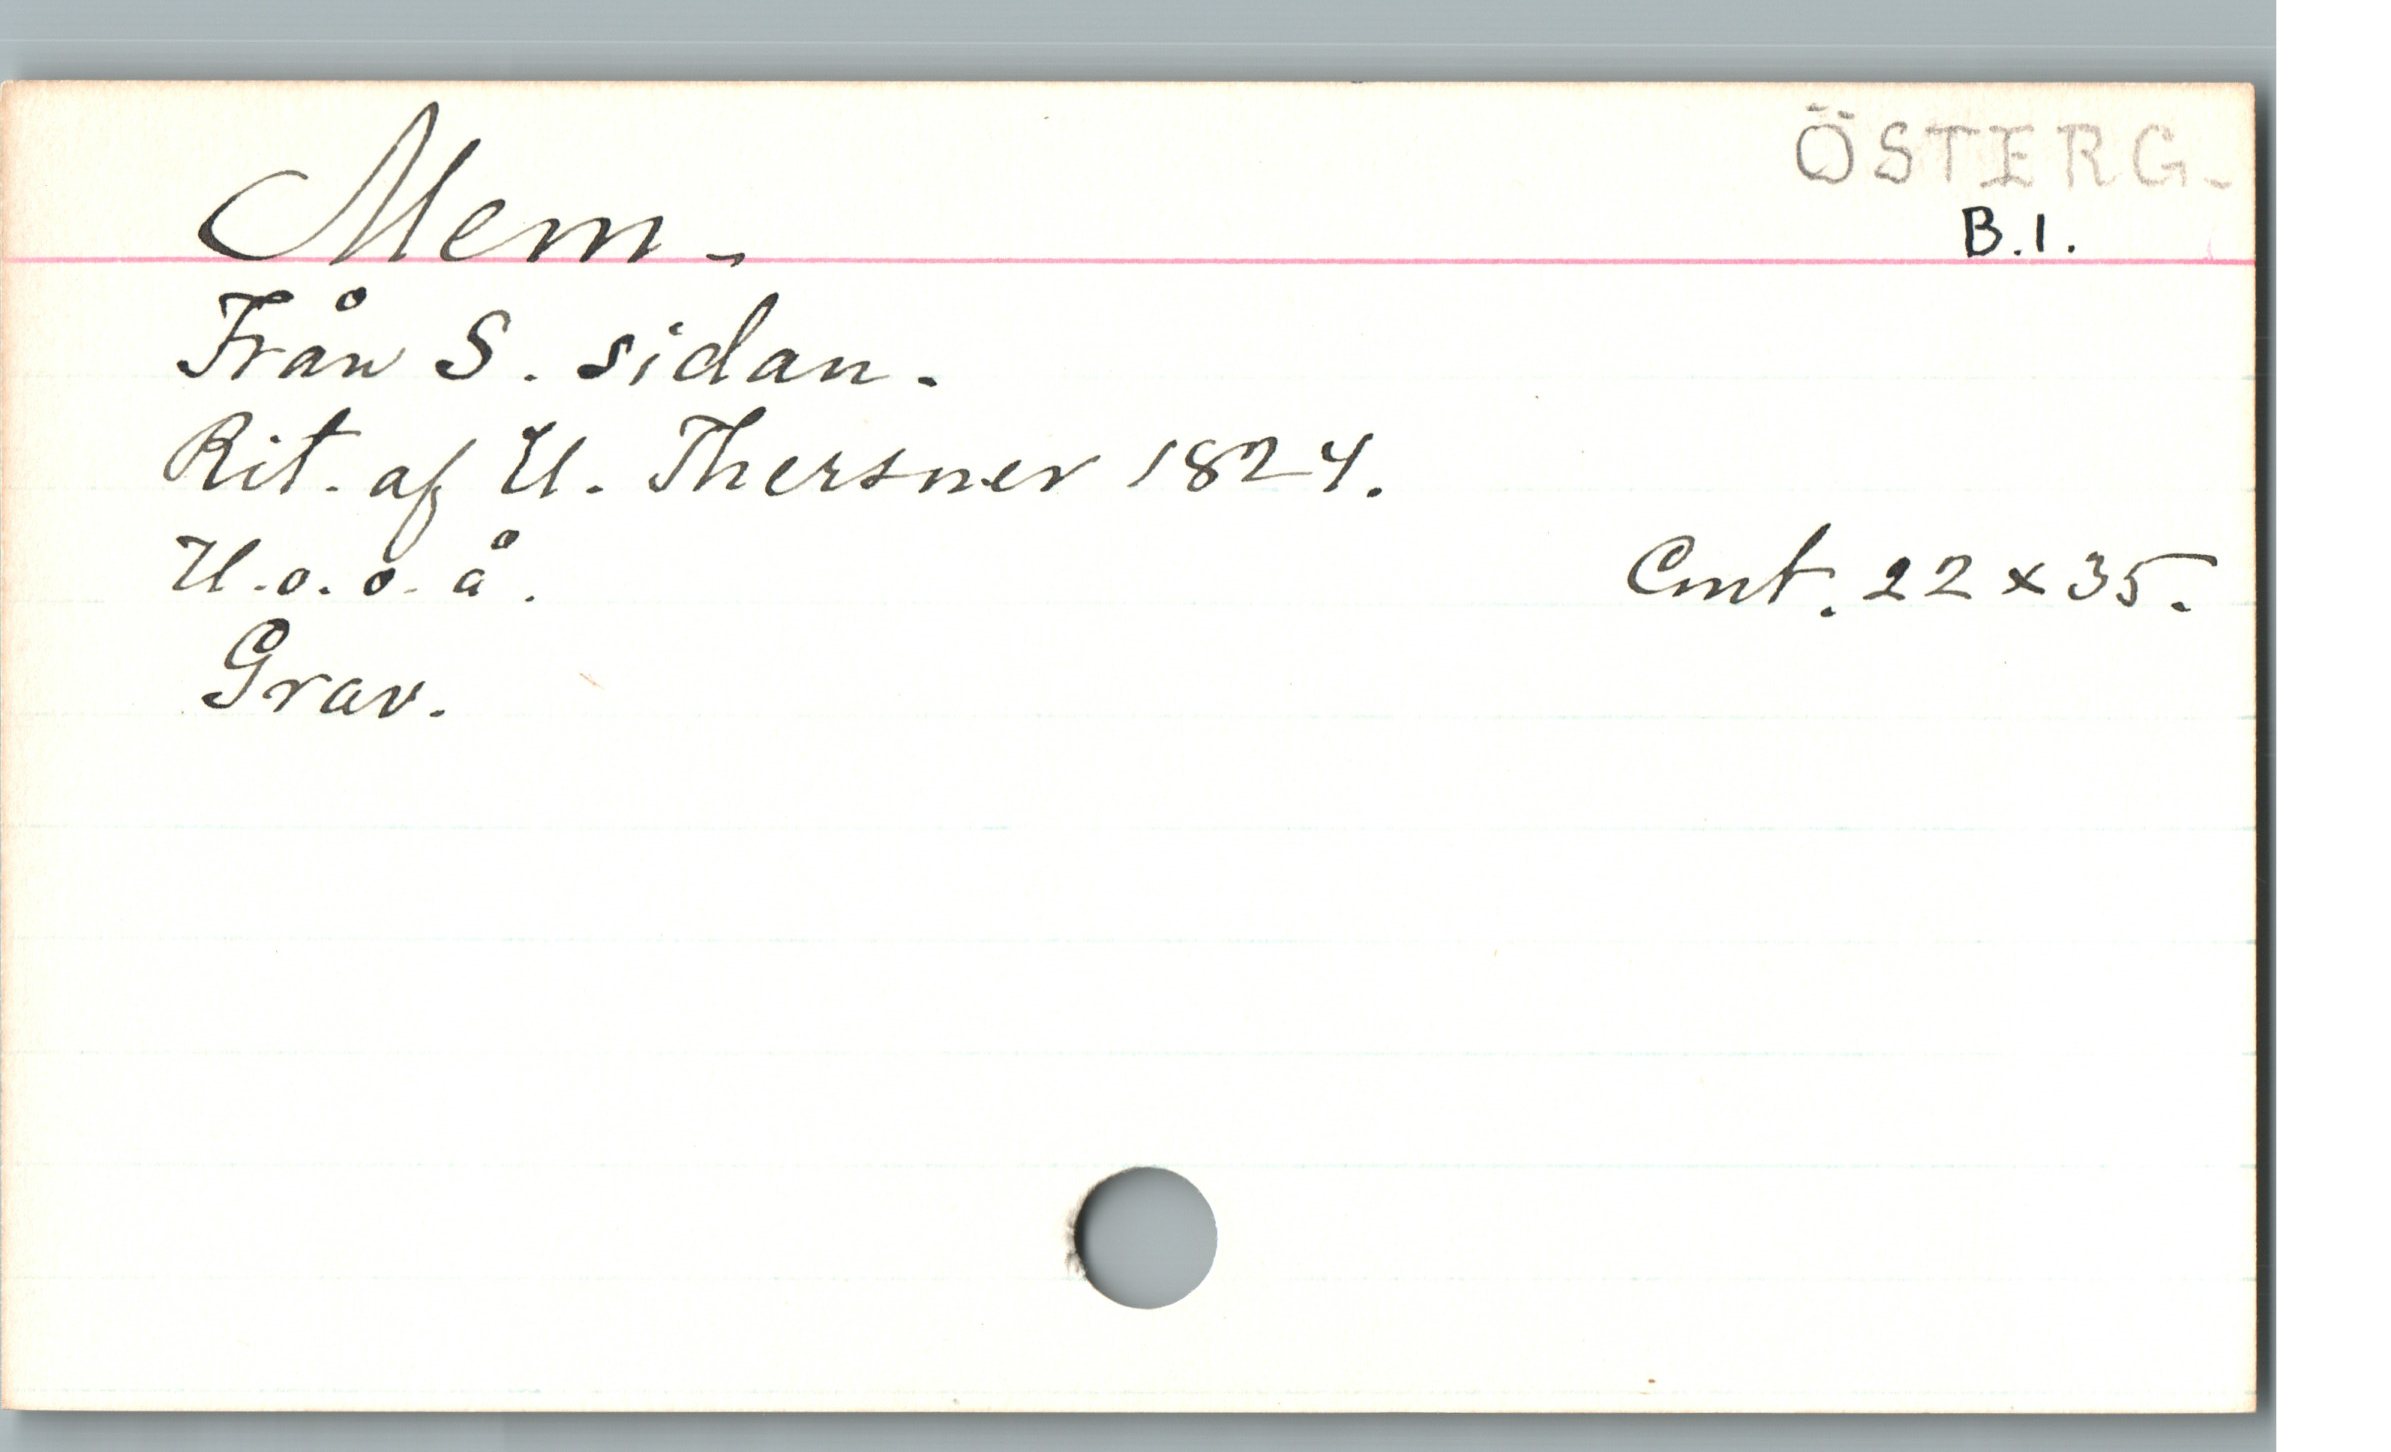 ÖSTERG.
Mem.
B.1.
Från S. sidan.
Rit. af U. Thersner 1824.
U.o.o.å. Cmt. 22 x 35.
Grav.